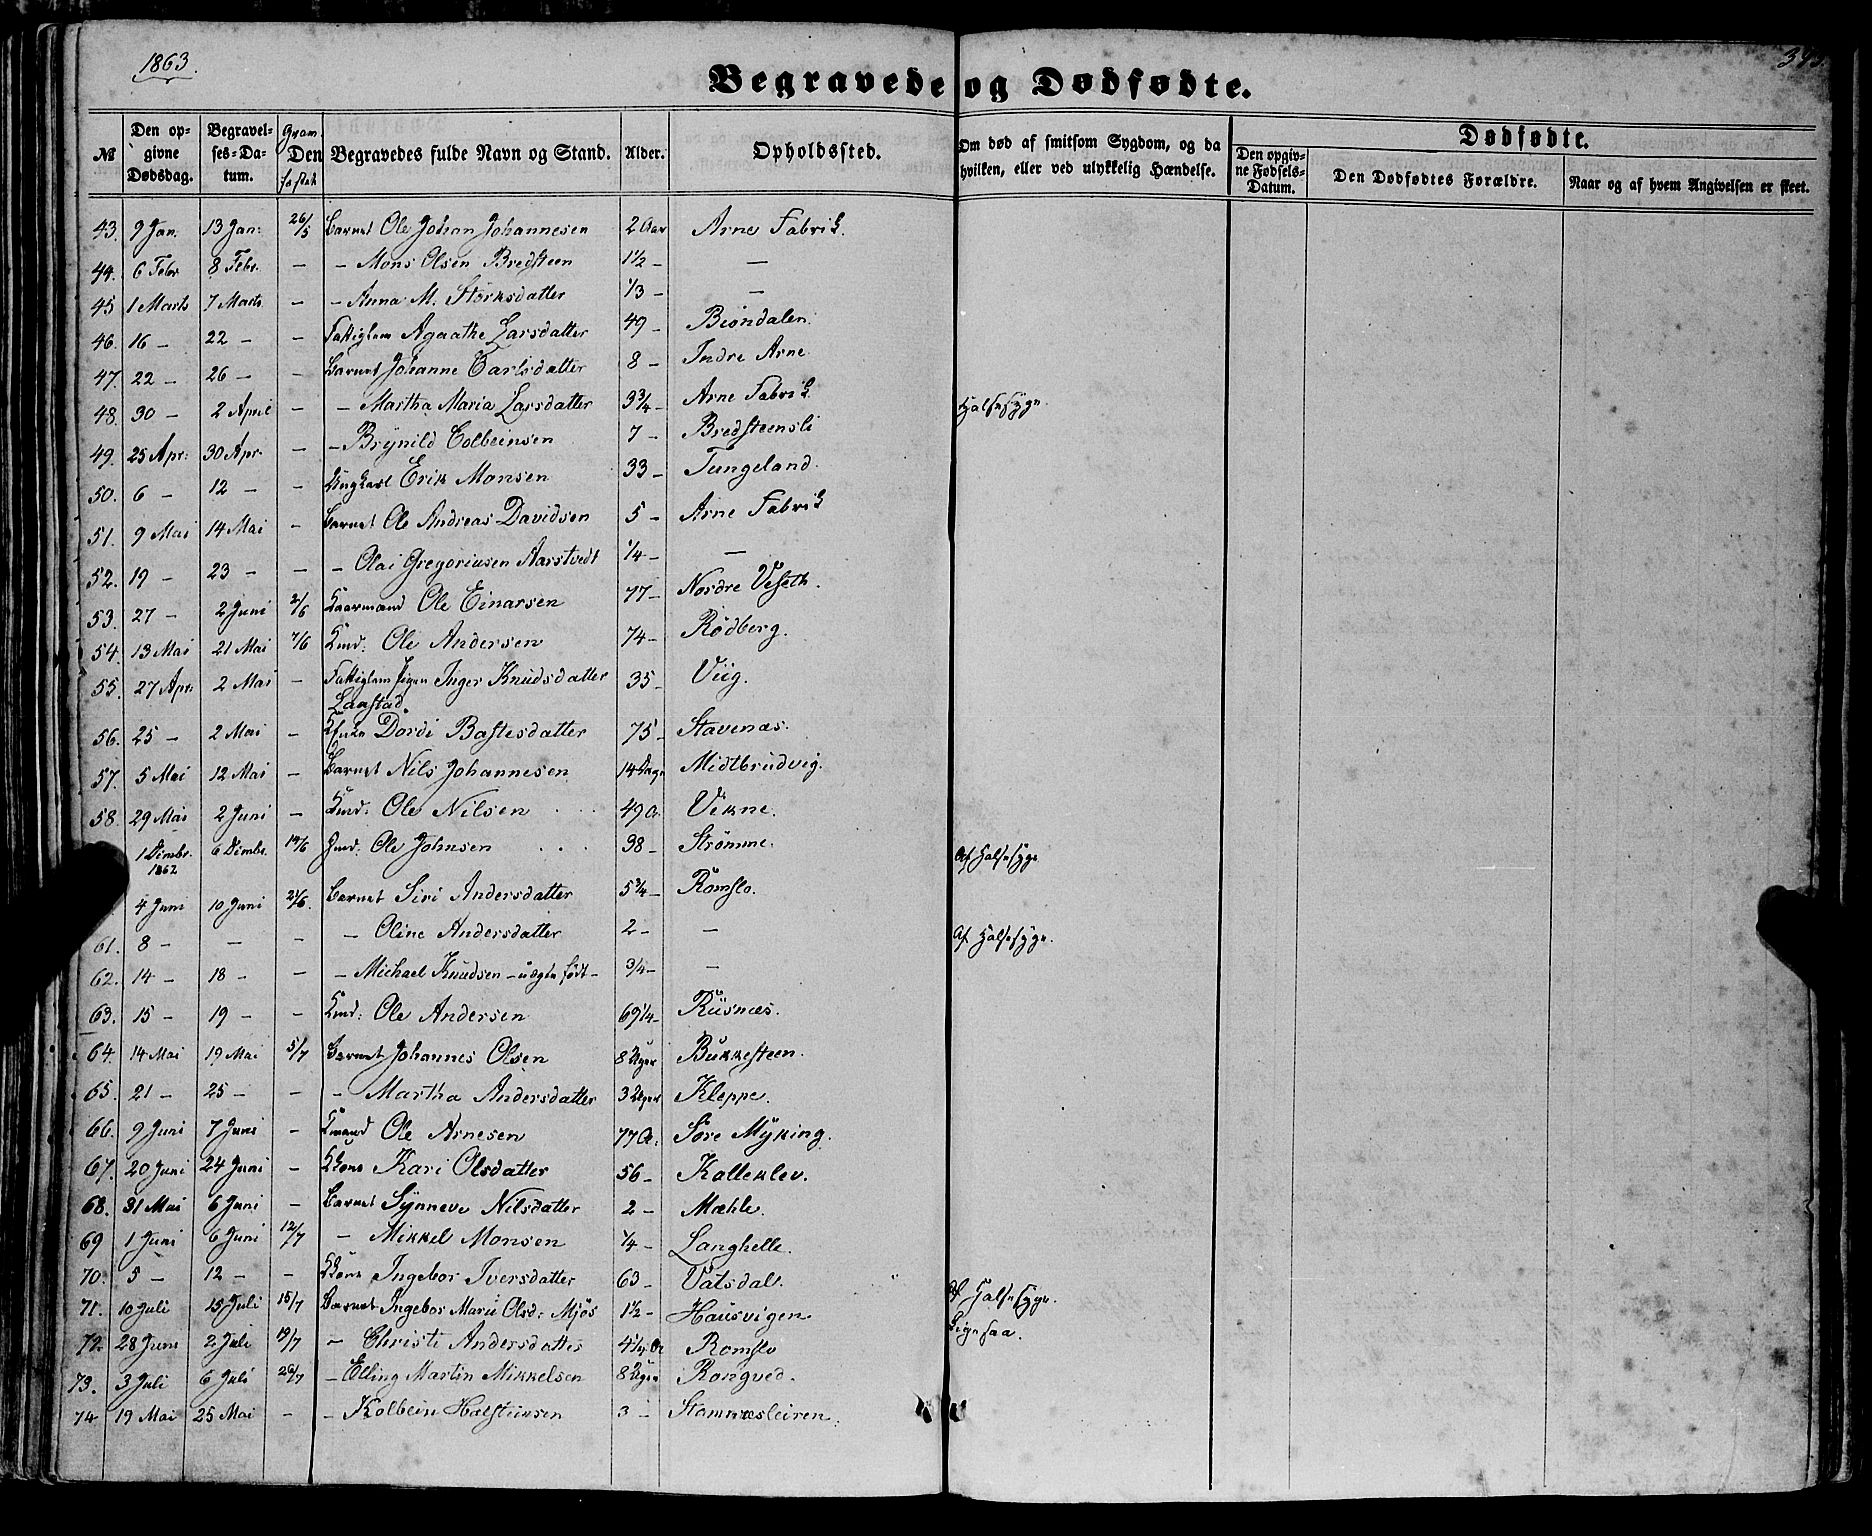 1863.
Begravede og Dødfødte.
№ Den opgivne Dødsdag. Begravelses-Datum. Den Begravedes fulde Navn og Stand. Alder. Opholdssted. Om død af smitsom Sygdom, og da hvilken, eller ved ulykkelig Hændelse. Dødfødte. Den opgivne Fødsels-Datum. Den Dødfødtes Forældre. Naar og af hvem Angivelsen er skeet.
43. 9 Jan. 13 Jan: 26/5 Barnet Ole Johan Johannesen 2 Aar Arne Fabrik.
44. 6 Febr 8 Febr. — — Mons Olsen Bredsteen 1½ — —
45 1 Marts 7 Marts — — Anna M. Störksdatter 1/3 — —
46. 16 — 22 — — Fattiglem Agaathe Larsdatter 49 — Biöndalen.
47. 22 — 26 — — Barnet Johanne Carlsdatter 8 — Indre Arne
48. 30 — 2 April — — Martha Maria Larsdatter 3¾ — Arne Fabrik Halsesyge.
49. 25 Apr: 30 Apr. — — Brynild Colbeinsen 7 — Bredsteensli
50. 6 — 12 — — Ungkarl Erik Monsen 33 — Tungeland.
51. 9 Mai 14 Mai — Barnet Ole Andreas Davidsen 5 — Arne Fabrik
52. 19 — 23 — — — Olai Gregoriusen Aarstvedt ¼ — —
53. 27 — 2 Juni 2/6 Kaarmand Ole Einarsen 77 — Nordre Veseth.
54. 13 Mai 21 Mai 7/6 Kmd: Ole Andersen 74 — Rödberg.
55. 27 Apr: 2 Mai — Fattiglem Pigen Inger Knudsdatter 35 — Viig.
Laastad
56. 25 — 2 Mai — Dordi Bastesdatter 75 — Stavenæs.
57. 5 Mai 12 Mai — Barnet Nils Johannesen 14 Dage Midtbrudvig.
58. 29 Mai 2 Juni — Kmd: Ole Nilsen 49 A. Vikne.
1 Dcmbr. 6 Dcmbr. 14/6 Gmd: Ole Johnsen 38 — Strömme. Af Halsesyge
1862
4 Juni 10 Juni 21/6. Barnet Siri Andersdatter 5¾ — Romslo.
61. 8 — — — — Oline Andersdatter 2 — — Af Halsesyge.
62. 14 — 18 — — — Michael Knudsen — uægte født — ¾ — —
63. 15 — 19 — — Kmd: Ole Andersen 69¼ — Riisnæs.
64. 14 Mai 19 Mai 5/7 Barnet Johannes Olsen 8 Uger Bukkesteen.
65. 21 — 25 — — — Martha Andersdatter 3 Uger Kleppe.
66. 9 Juni 7 Juni — Kmand Ole Arnesen 77 A. Søre Myking.
67. 20 Juni 24 Juni — Kone Kari Olsdatter 56 — Kalleklev.
68. 31 Mai 6 Juni — Barnet Synneve Nilsdatter 2 — Mæhle.
69 1 Juni 6 Juni 12/7 — Mikkel Monsen ¼ — Langhelle.
70. 5 — 12 — — Kone Ingebor Iversdatter 63 — Vatsdal.
71. 10 Juli 15 Juli 15/7 Barnet Ingebor Marie Olsd: Mjös 1½ — Hausvigen Af Halsesyge.
72. 28 Juni 2 Juli 19/7 — Christi Andersdatter 4¼ A Romslo Ligesaa.
73. 3 Juli 6 Juli 26/7 — Elling Martin Mikkelsen 8 Uger Rongved.
74. 19 Mai 25 Mai — — Kolbein Halsteinsen 3 — Stamnæsleiren.